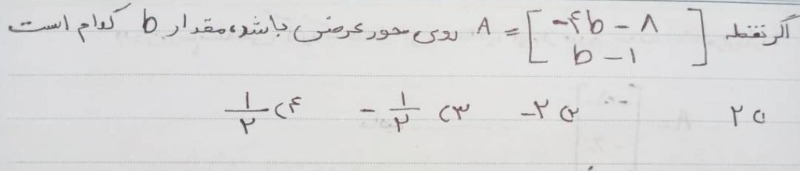 اگر نقطه A = [ -۴b - ۸ ] روی محور عرض باشد، مقدار b کدام است
[ b - ۱ ]
۱) ۲    ۲) -۲    ۳) -۱/۲    ۴) ۱/۲